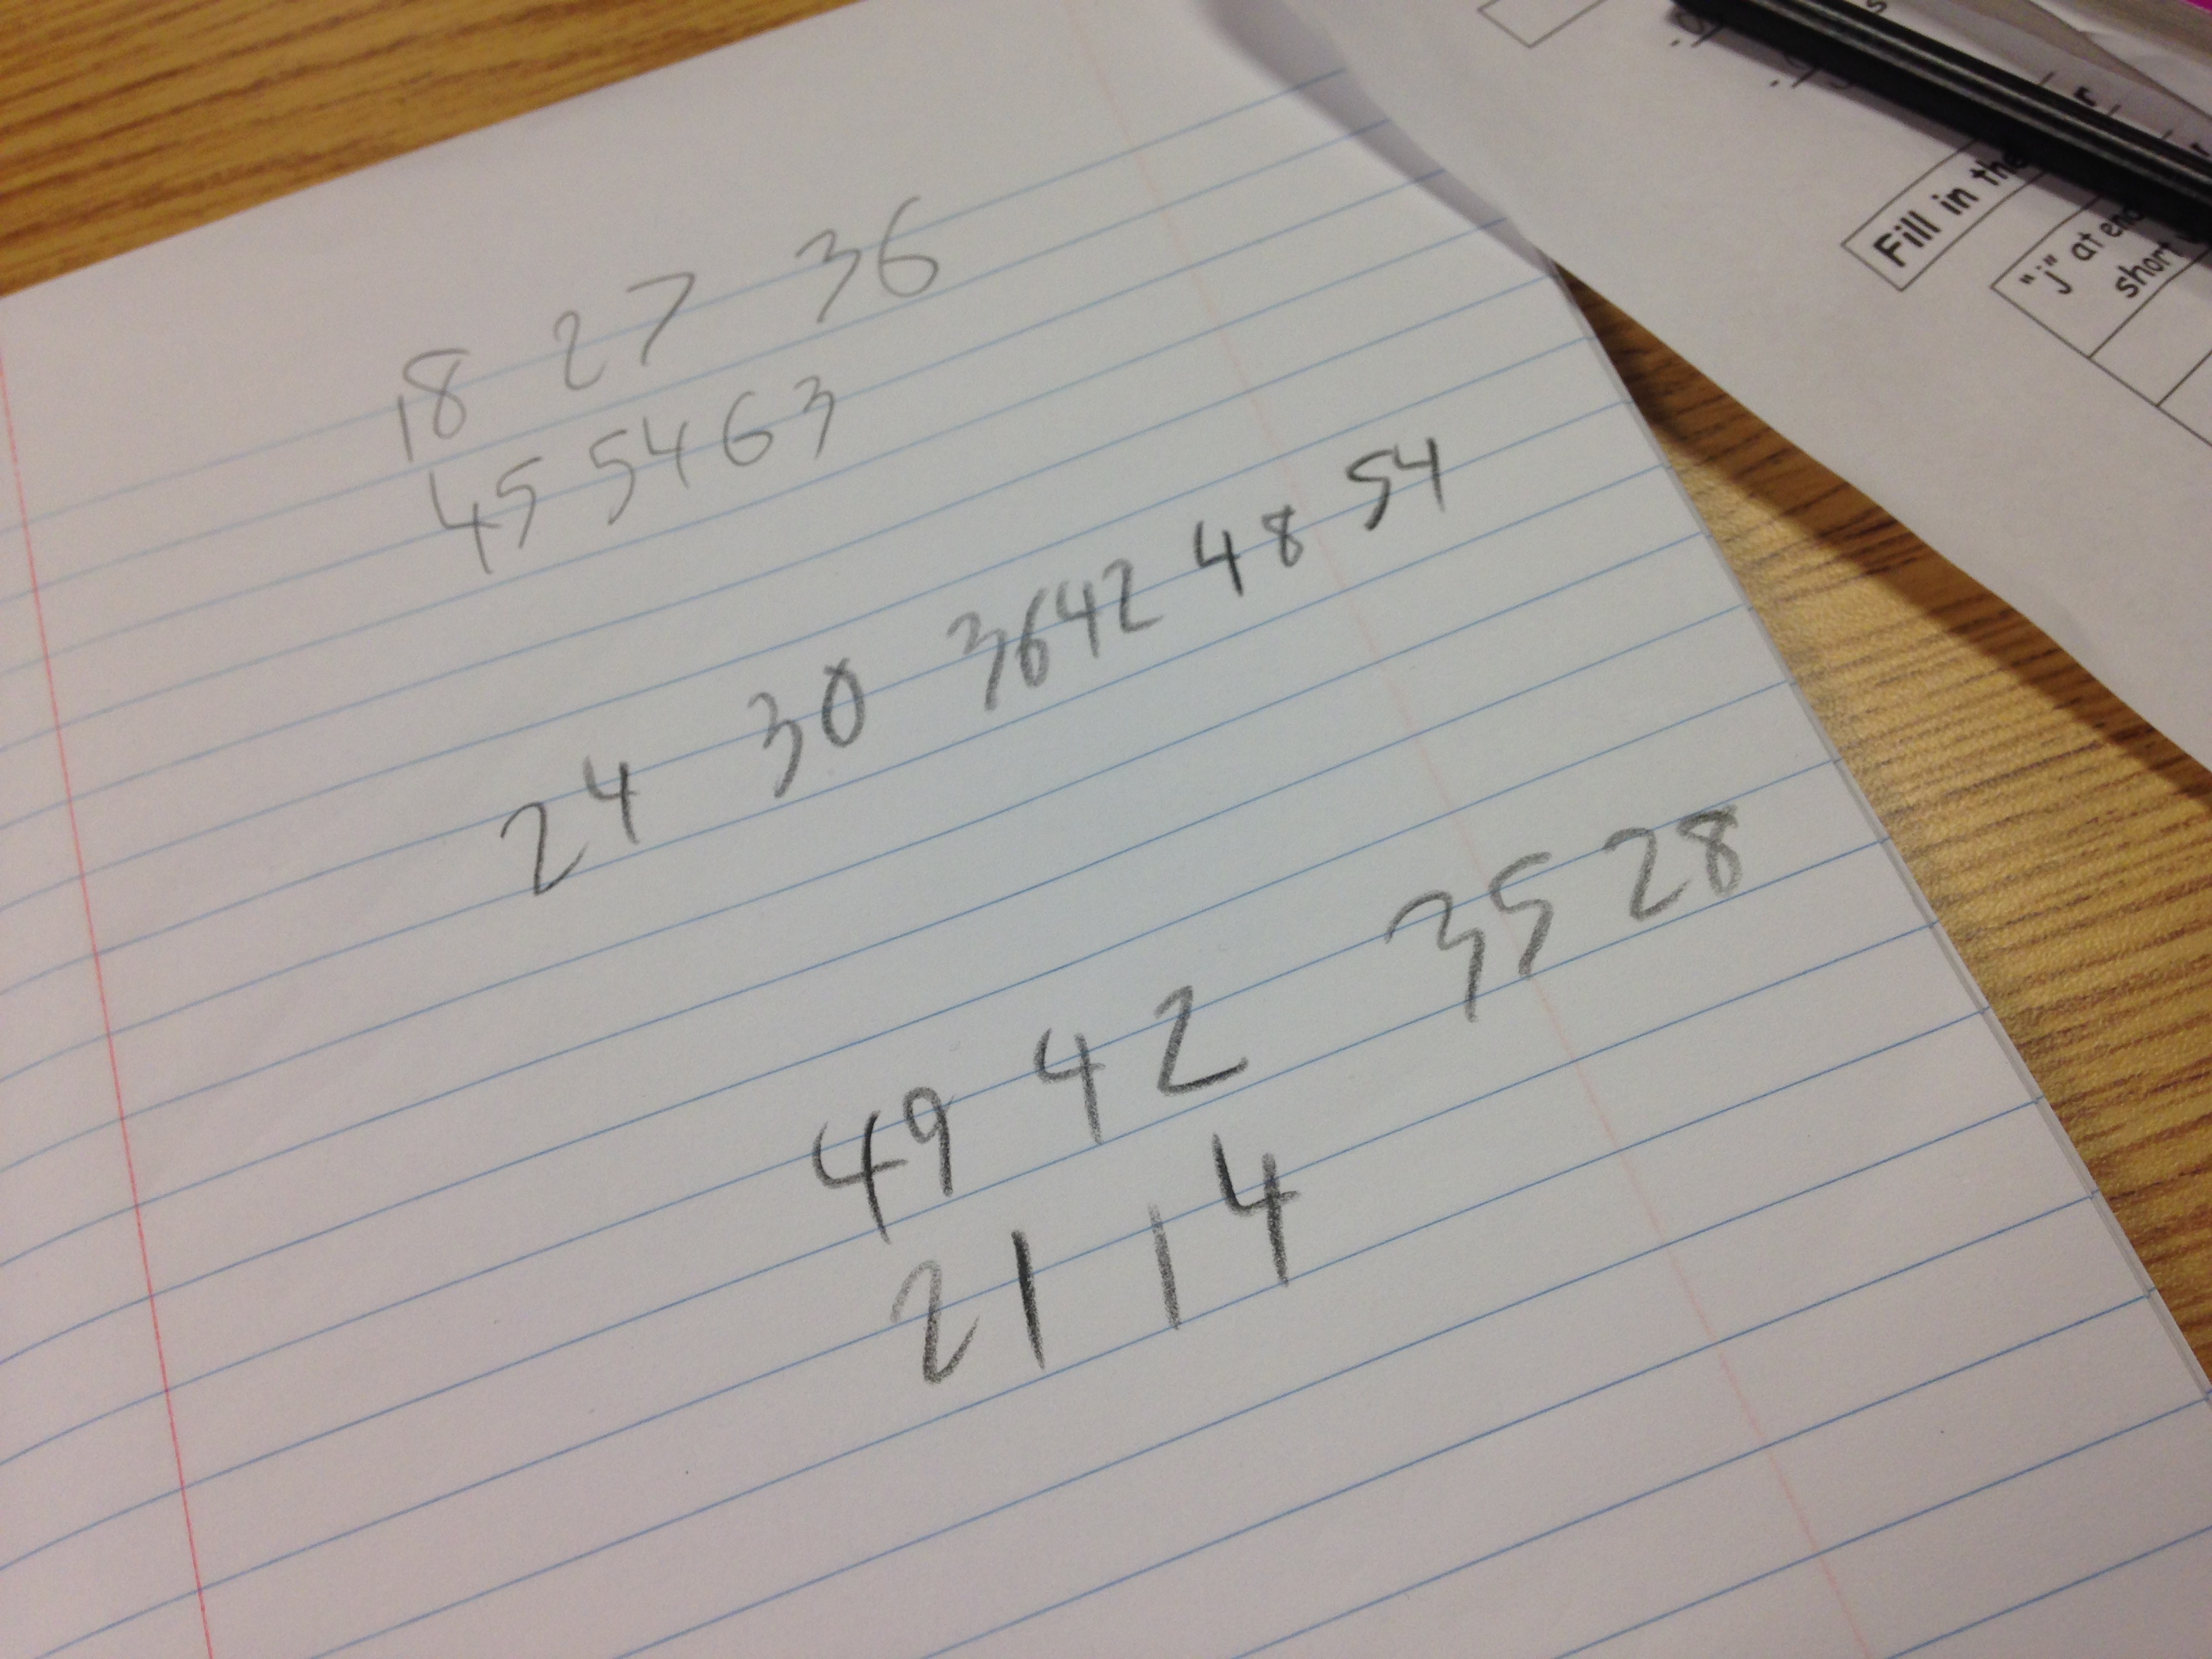 18 27 36
45 54 63
24 30 36 42 48 54
49 42 35 28
21 14
Fill in the
"j" at end
short